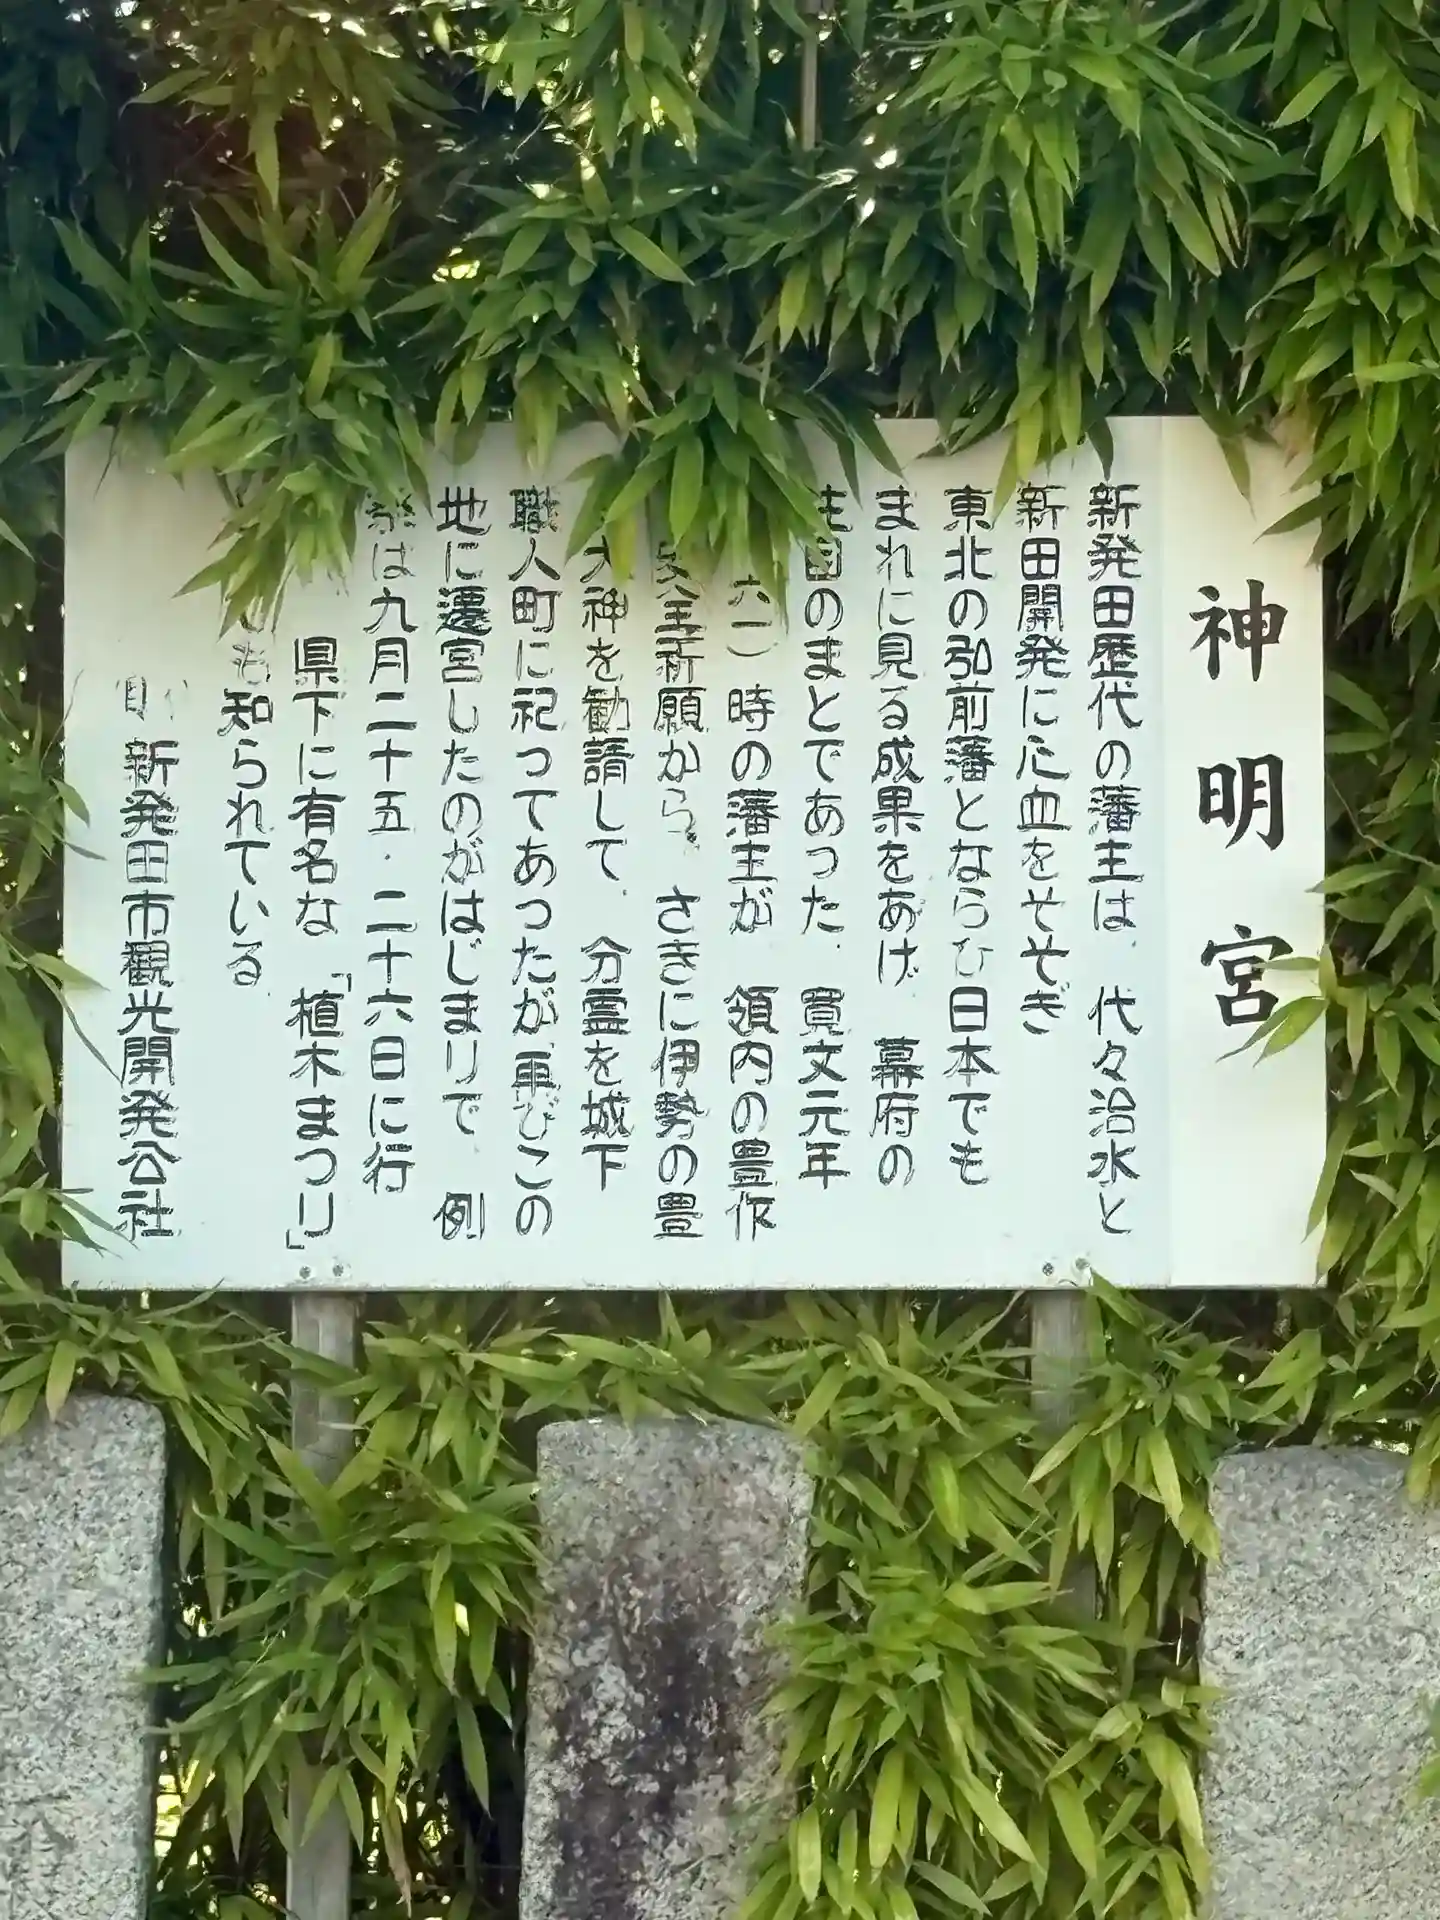 神明宮
新発田歴代の藩主は、代々治水と
新田開発に心血をそそぎ
東北の弘前藩とならび日本でも
まれに見る成果をあげ 幕府の
のまとであった、寛文元年
六一)時の藩主が 領内の豊作
全祈願から、さきに伊勢の豊
大神を勧請して、分霊を城下
職人町に祀ってあったが、再びこの
地に遷宮したのがはじまりで、例
祭は九月二十五・二十六日に行
県下に有名な「植木まつり」
も知られている。
新発田市観光開発公社